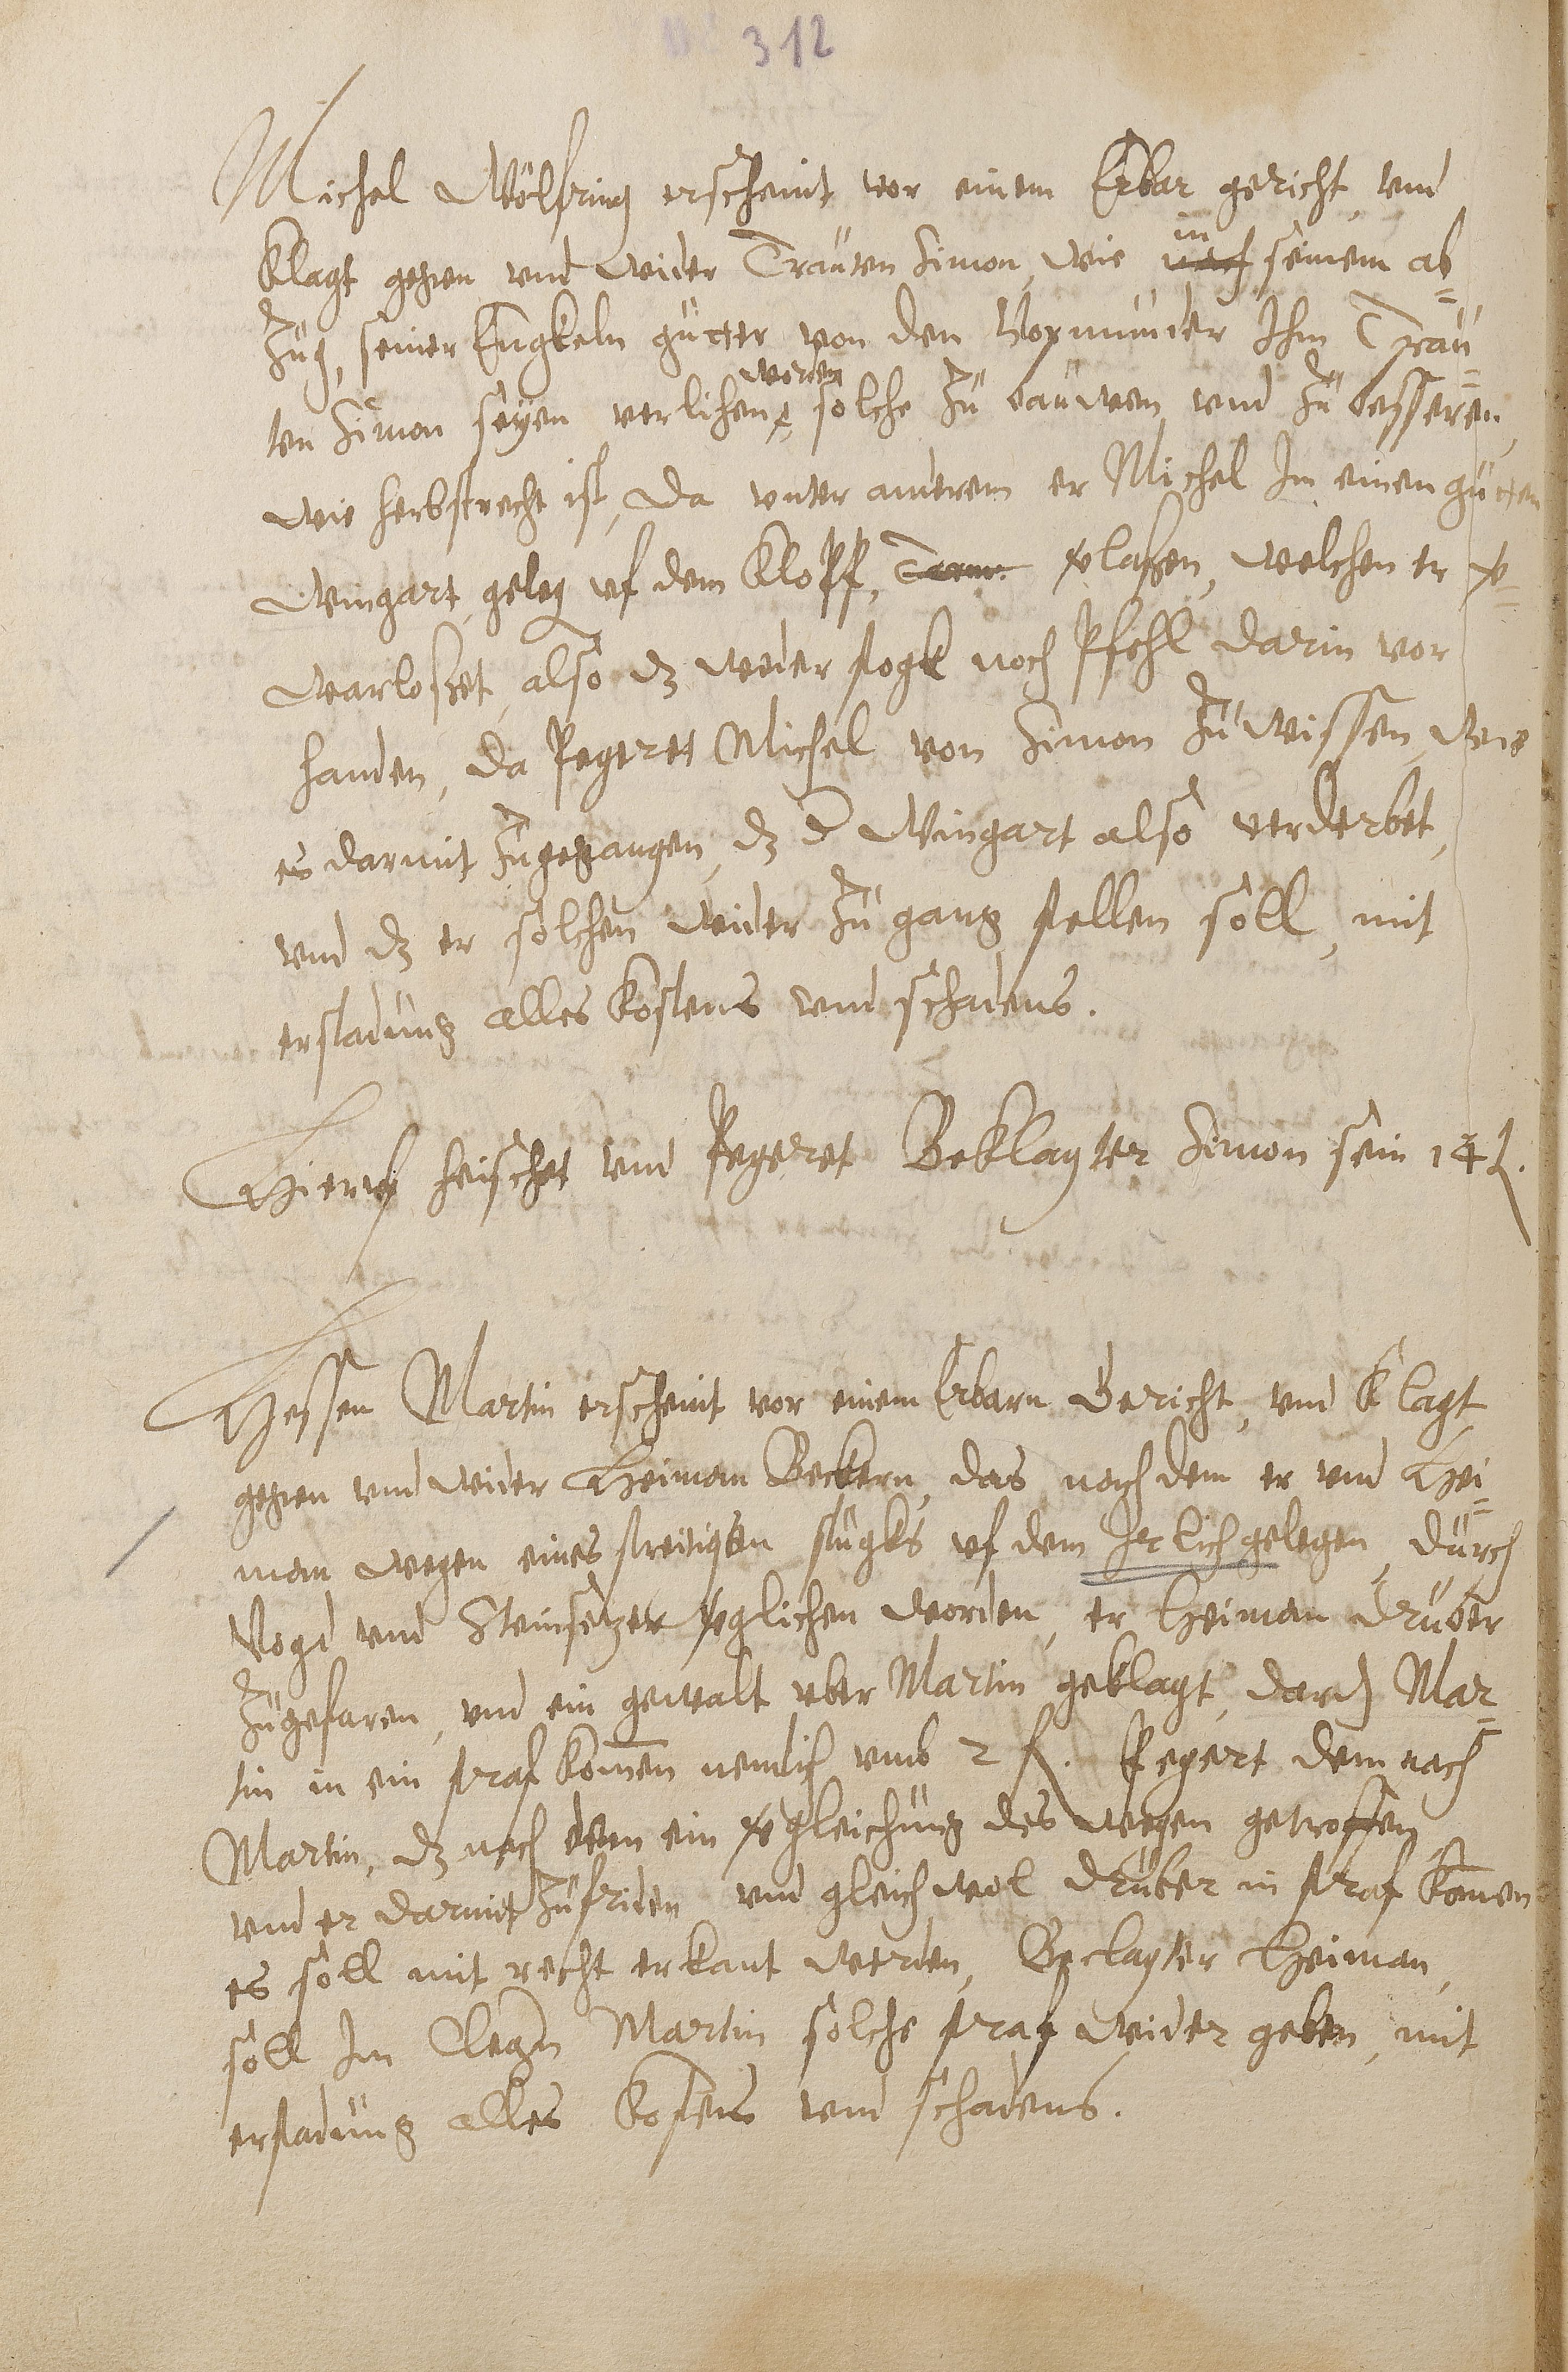 312
Michel Wölfring erscheint vor einem Erbar gericht, vnd
Klagt gehen vnd wider Trauten Simon, wie in seinem ab=
zug, seiner Engkeln gütter von den Vormünder Ihm Trau=
ten Simon seyen verlihen worden, solche zu bauwen vnd zu besseren,
wie herbstrecht ist, Da vnter anderem er Michel Im einen gutten
Wingart gelegen vf dem Kloppf, verlaßen, welchen er ver=
warloset, also dz weder stogk noch Pfehl darin vor
handen, Da Pegeret Michel von Simon zu wissen, wie
es darmit zugehangen, dz d Wingart also verderbet,
vnd dz er solchen wider zu gang stellen soll, mit
erstadung alles Kostens vnd schadens.
Hieruf heischet vnd Pegeret Beklagter Simon sein 14 t.
Hessen Martin erscheint vor einem Erbarn Gericht, vnd Klagt
gehen vnd wider Heiman Beckern, das noch dem er vnd Hei=
man wegen eines streitigen stügks vf dem Herlich gelegen, durch
Vogd vnd Steinsetzer verglichen worden, er Heiman druber
zugefaren, vnd ein gewalt vber Martin geklagt, dardurch Mar=
tin in ein straf komen nemlich vmb 2 fl. Pegert dem nach
Martin, dz noch dem ein vergleichung des wegen getroffen
vnd er darmit zufriden vnd gleich wol druber in straf komen
es soll mit recht erkant werden, Beclagter Heiman,
soll Im Clegern Martin solche straf wider geben, mit
erstadung alles Kostens vnd schadens.